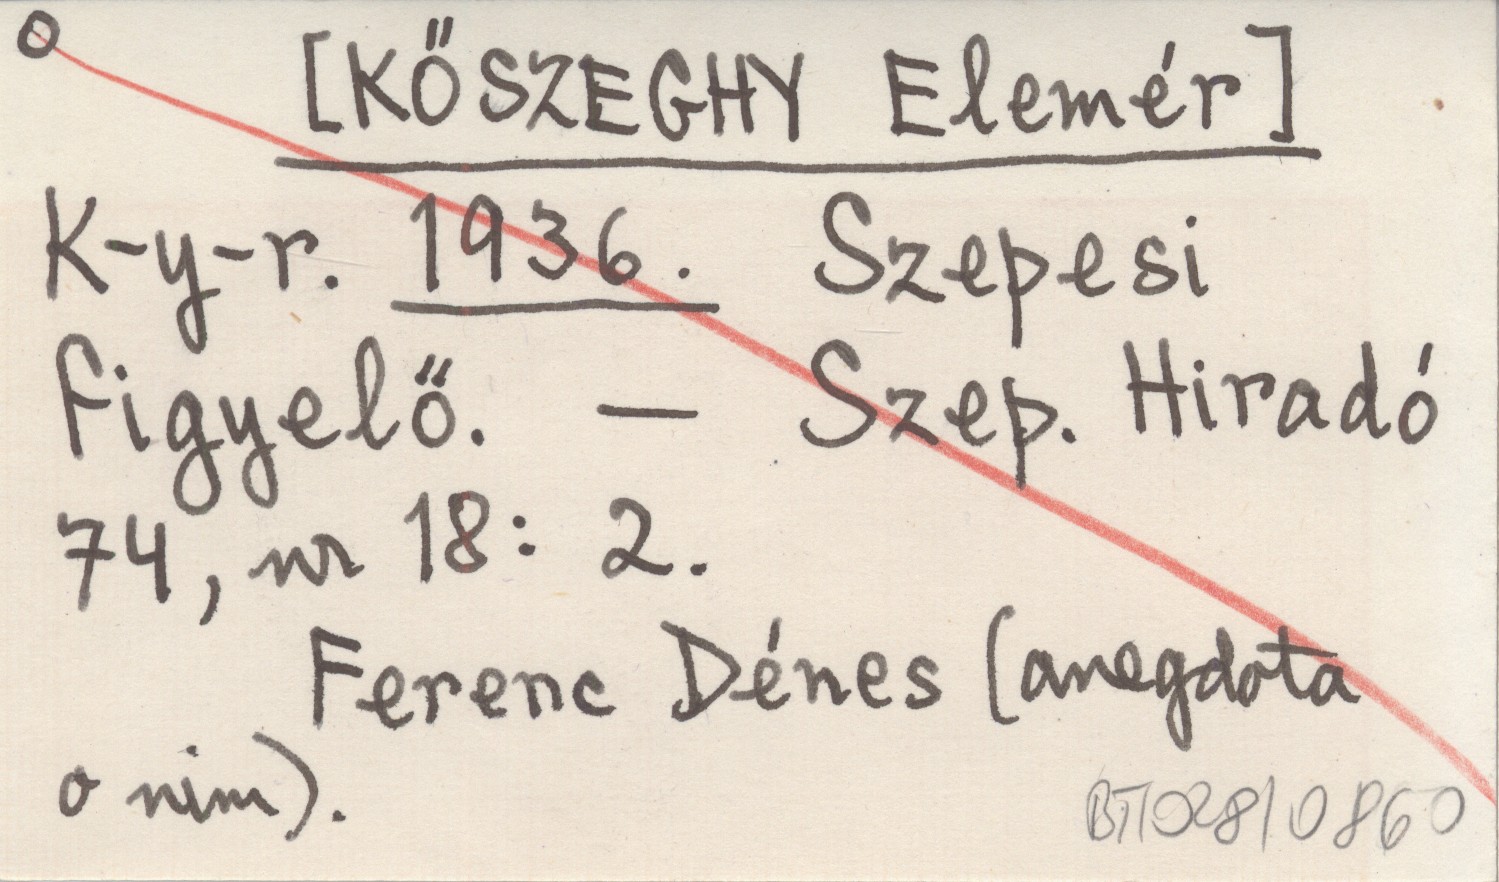 [KŐSZEGHY Elemér]
K-y-r. 1936. Szepesi
Figyelő. — Szep. Hiradó
74, nr 18: 2.
Ferenc Dénes (anegdota
o nim).
BT1028/0860